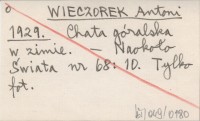 WIECZOREK Antoni
1929. Chata góralska
w zimie. — Naokoło
Świata nr 68: 10. Tylko
fot.